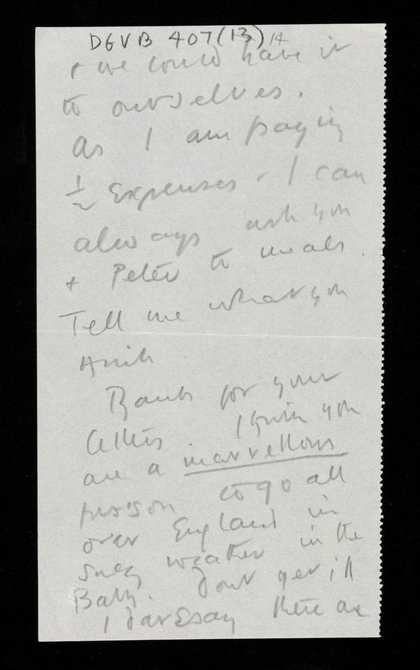 DGVB 407(13) 14
+ we could have it
to ourselves.
As I am paying
½ Expenses - I can
always ask you
+ Peter to meals.
Tell me what you
think
Thanks for your
letters. I think you
are a marvellous
person to go all
over England in
such weather in the
Baby. Dont get ill
I daresay there are